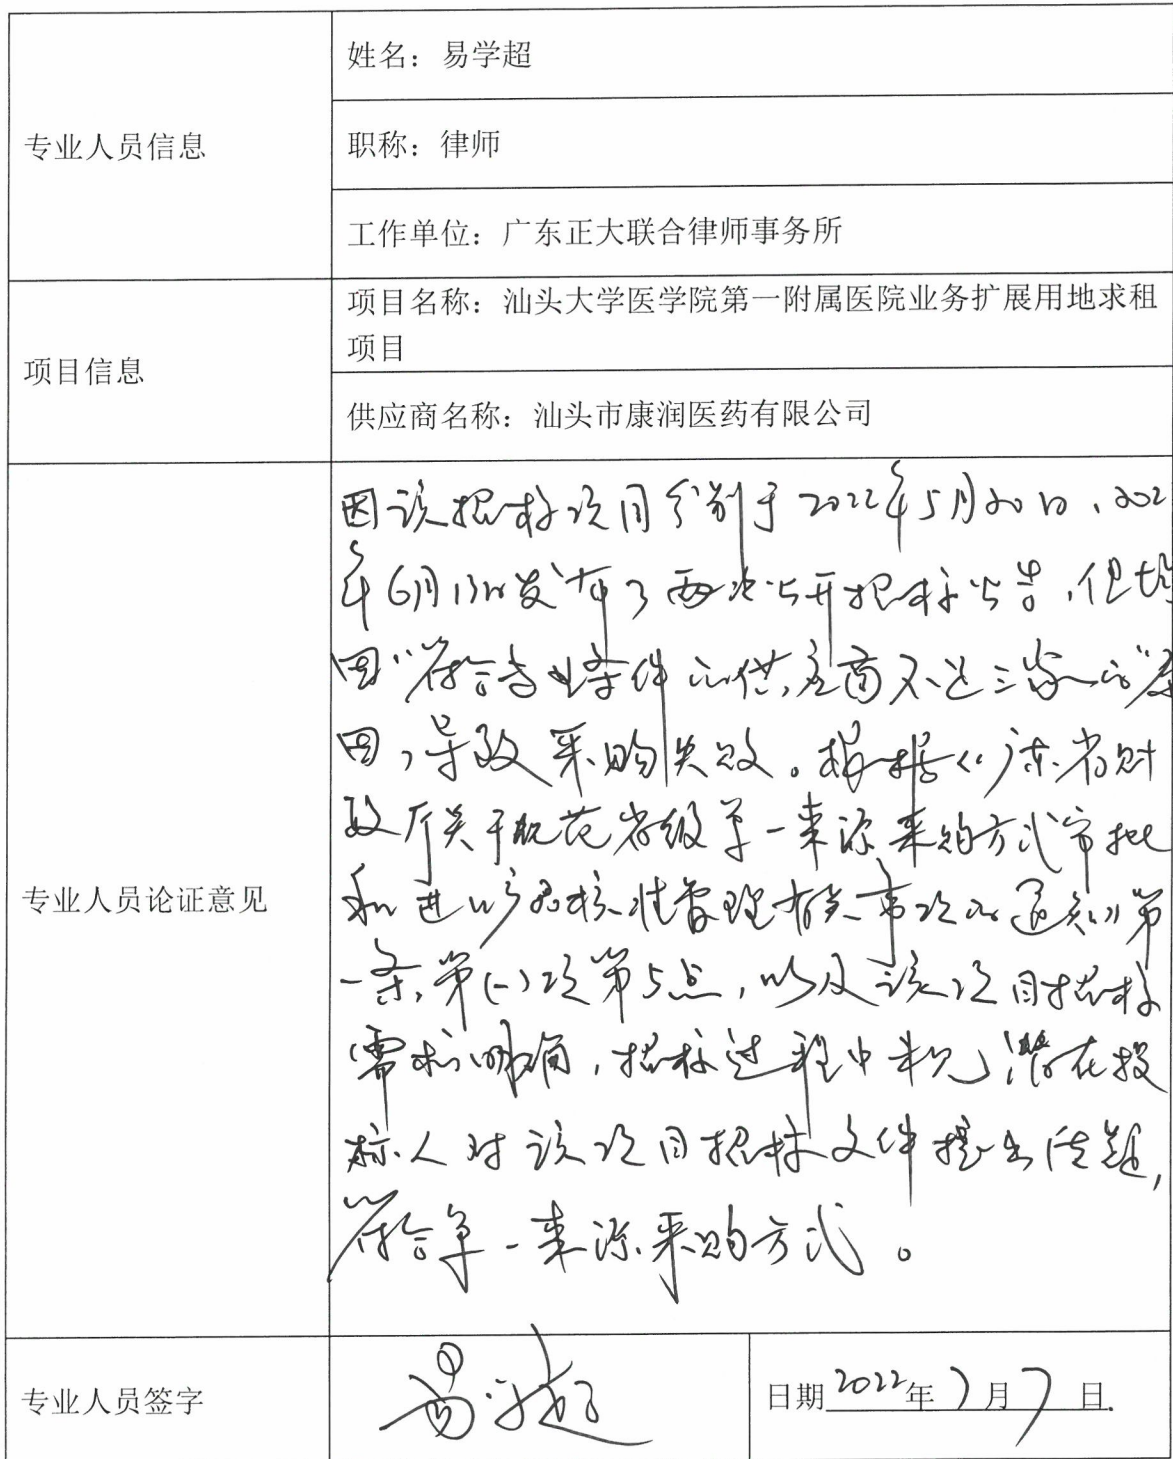 专业人员信息
姓名：易学超
职称：律师
工作单位：广东正大联合律师事务所
项目信息
项目名称：汕头大学医学院第一附属医院业务扩展用地求租
项目
供应商名称：汕头市康润医药有限公司
专业人员论证意见
因该招标项目分别于2022年5月20日、202
年6月13日发布了两次公开招标公告，但均
因“符合专业条件的供应商不足三家”的原
因，导致采购失败。根据《广东省财
政厅关于规范省级单一来源采购方式审批
和进口产品核准管理有关事项的通知》第
一条，第(一)项第5点，以及该项目招标
需求明确，招标过程中未见潜在投
标人对该项目招标文件提出质疑，
符合单一来源采购方式。
专业人员签字
易学超
日期2022年7月7日.